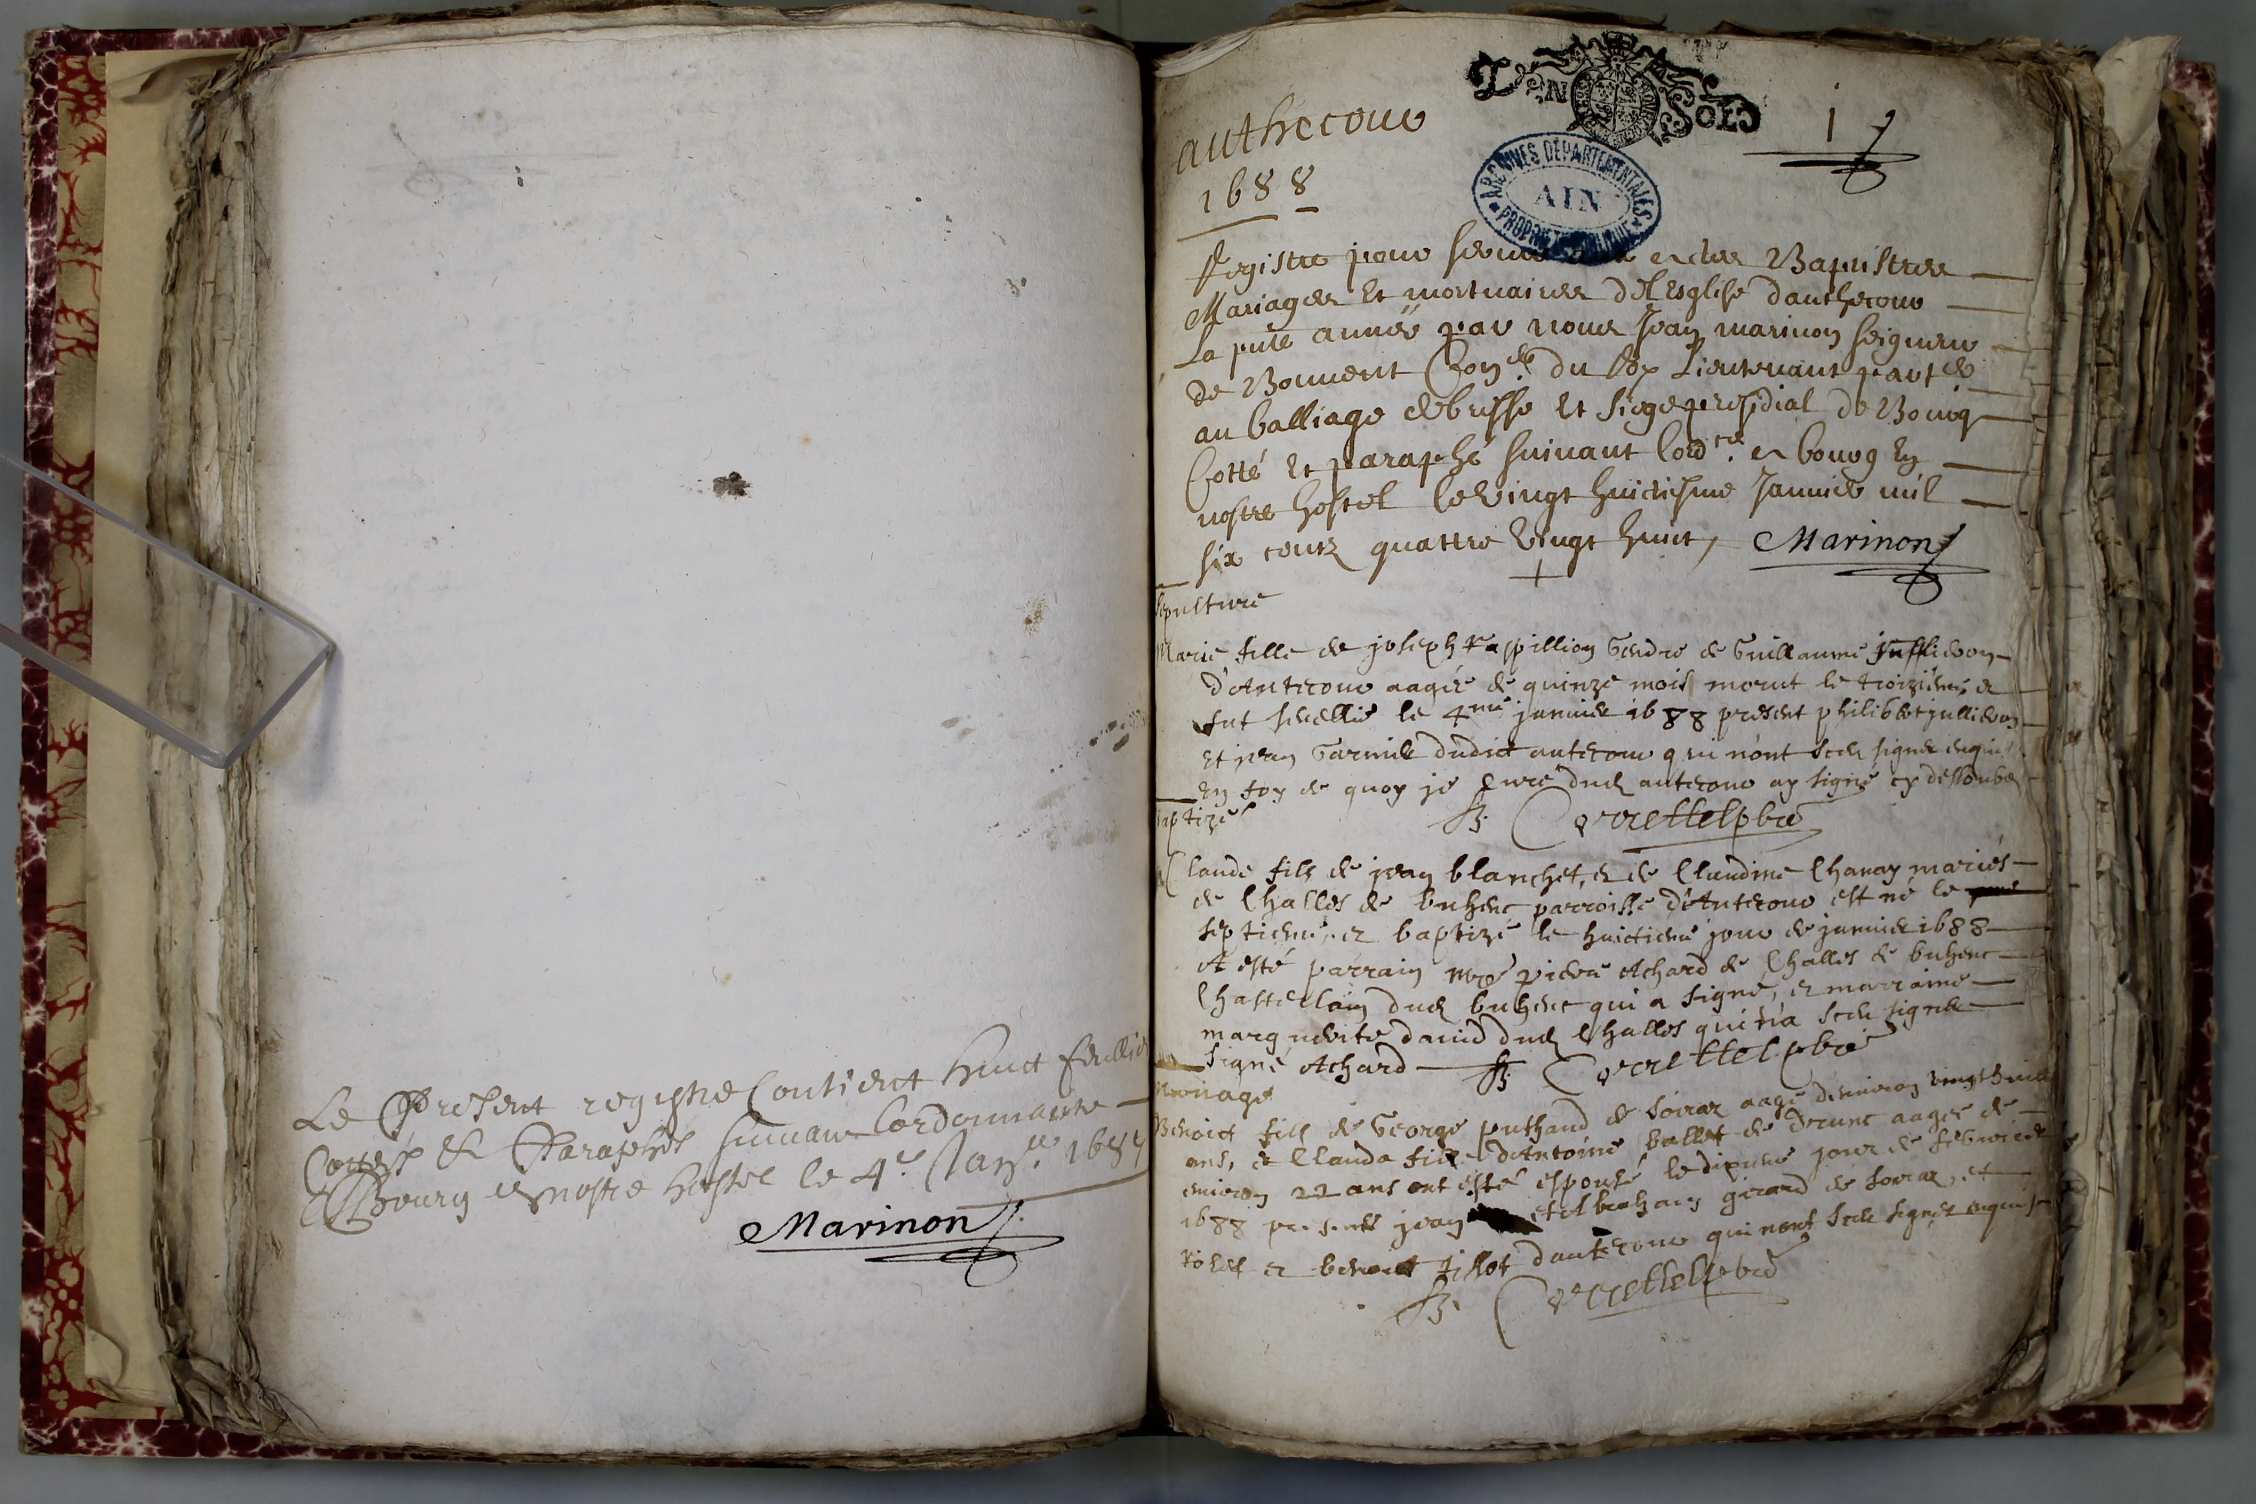 Le present registre Contient huict feulliets
Cottéz & Paraphés suivant Lordonnance
A Bourg en nostre hostel le 4e Jan.er 1687
Marinon
authecour
1688
DEN SOLS
1
ARCHIVES DÉPARTEMENTALES
AIN
PROPRIÉTÉ PUBLIQUE
Registre pour servir et les Baptistres
Mariages Et mortuaires de L'esglise dauthecour
La pnte année par nous Jean marinon seigneur
de Bouvent Con.er du Roy Lieutenant part.er
au balliage de bresse Et siege presidial de Bourg
Cotté Et paraphé suivant lord.ce a bourg En
nostre hostel le vingt huictiesme Janvier mil
six centz quattre vingt huict, Marinon
sepulture
Marie fille de joseph gendre de Guillaume jullieron
d'Antecour aagée de quinze mois mourut le troizieme et
fut sevellie le 4me janvier 1688 present philibert jullieron
et jean Garnier dudict antecour qui n'ont sceu signer enquis
En foy de quoy je Curé dud antecour ay signé cy dessoubz
baptizé
Claude filz de jean blanchet, et de Claudine Chanay mariés
de Challes de buhenc parroisse d'Antecour est né le
septieme, et baptizé le huictieme jour de janvier 1688
A esté parrain Mre pierre Achard de Challes de buhenc
Chastellain dud buhenc qui a signé, et marraine
marguerite david dud Challes qui n'a sceu signer
signé Achard
Mariage
Benoict filz de George puthaud de soiraz aagé d'environ vingt huict
ans, et Clauda fille d'Antoine ballet de Drunc aagée de
environ 22 ans ont esté espousé le dixieme jour de febvrier
1688 presents jean et Abraham girard de soiraz, et
et benoict tillot dantecour qui nont sceu signer enquis